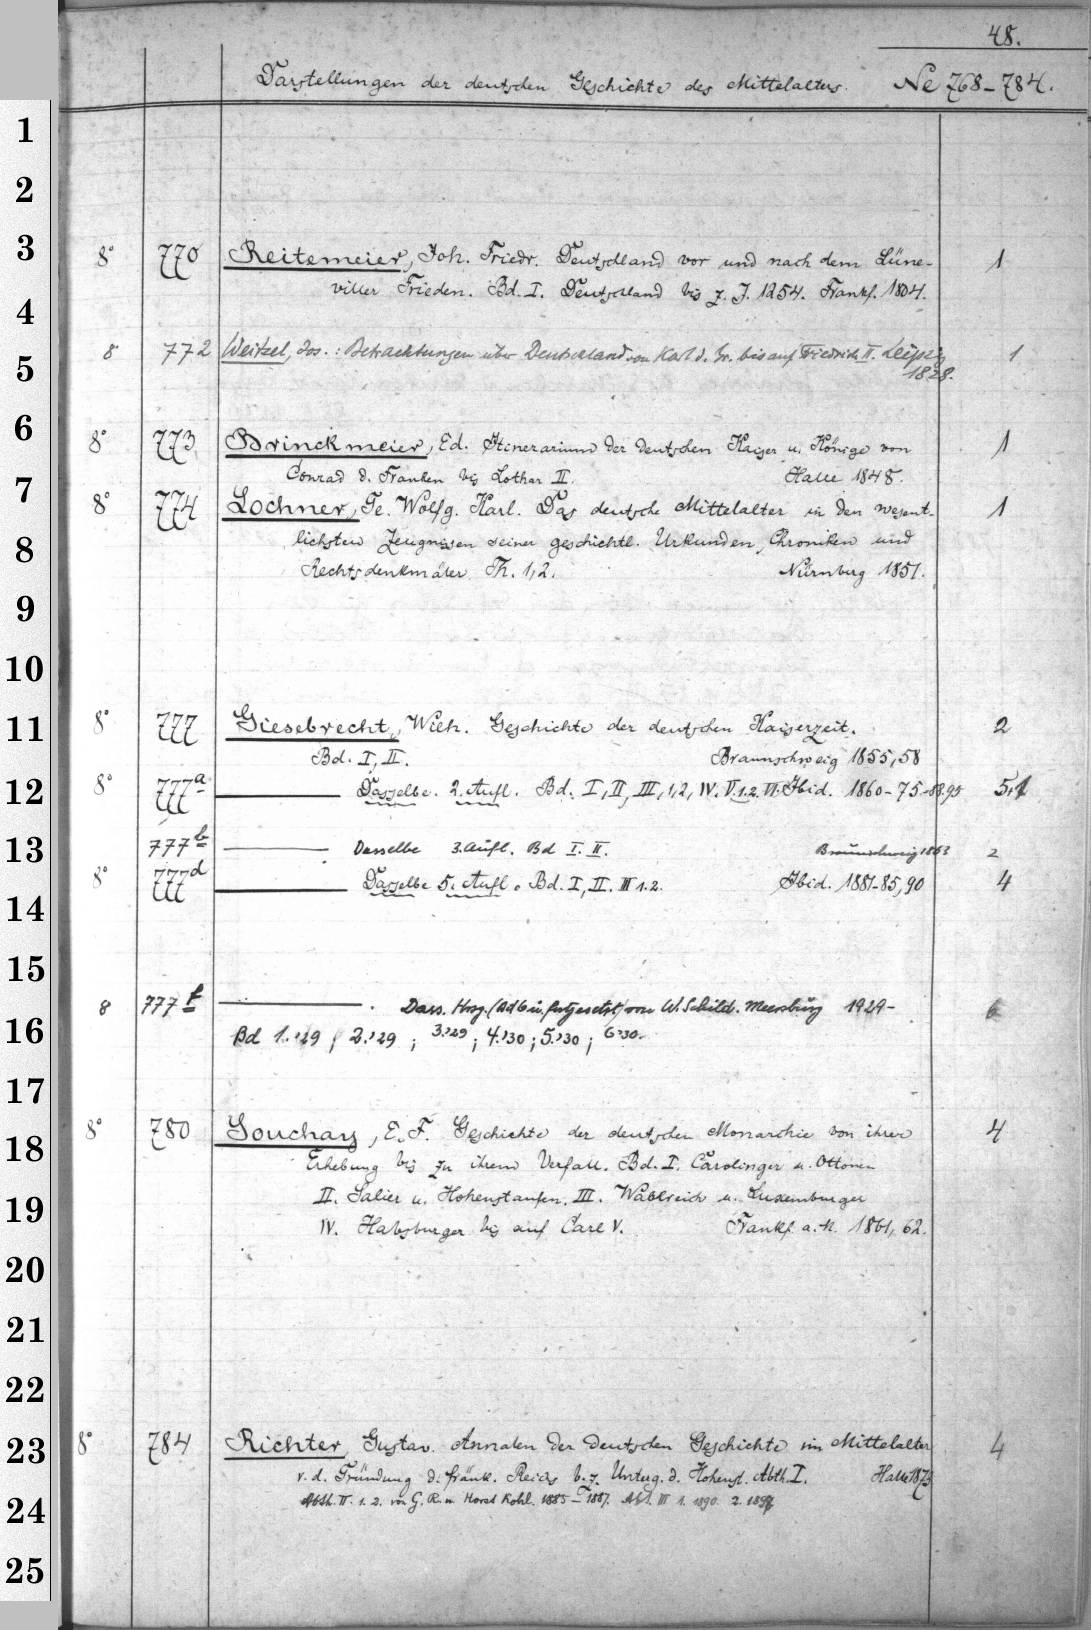 48.
Darstellungen der deutschen Geschichte des Mittelalters. Ne 768-784.
1
2
3
4
5
6
7
8
9
10
11
12
13
14
15
16
17
18
19
20
21
22
23
24
25
8° 770 Reitemeier, Joh. Friedr. Deutschland vor und nach dem Lüne- 1
viller Frieden. Bd. I. Deutschland bis z. J. 1254. Frankf. 1804.
8 772 Weitzel, Jos.: Betrachtungen über Deutschland von Karl d. Gr. bis auf Friedrich II. Leipzig 1
1828.
8° 773 Brinckmeier, Ed. Itinerarium der deutschen Kaiser u. Könige von 1
Conrad d. Franken bis Lothar II. Halle 1848.
8° 774 Lochner, Ge. Wolfg. Karl. Das deutsche Mittelalter in den wesent- 1
lichsten Zeugnissen seiner geschichtl. Urkunden, Chroniken und
Rechtsdenkmäler Th. 1,2. Nürnberg 1851.
8° 777 Giesebrecht, Wilh. Geschichte der deutschen Kaiserzeit. 2
Bd. I, II. Braunschweig 1855, 58
8° 777a Dasselbe. 2. Aufl. Bd. I, II, III, 1,2, IV. V.1.2. VI. Ibid. 1860-75-88.95 5,1
777b Dasselbe 3. Aufl. Bd I. II. Braunschweig 1863 2
8° 777d Dasselbe 5. Aufl. Bd. I, II. III 1.2. Ibid. 1881-85, 90 4
8 777f Dass. Hrsg. (Bd 6 u. fortgesetzt) von W. Schild. Meersburg 1929- 6
Bd 1.'29; 2.'29; 3.'29; 4.'30; 5.'30; 6.'30.
8° 780 Souchay, E. F. Geschichte der deutschen Monarchie von ihrer 4
Erhebung bis zu ihrem Verfall. Bd. I. Carolinger u. Ottonen
II. Salier u. Hohenstaufen. III. Wahlreich u. Luxemburger
IV. Habsburger bis auf Carl V. Frankf. a. M. 1861, 62.
8° 784 Richter, Gustav. Annalen der deutschen Geschichte im Mittelalter 4
v. d. Gründung d. fränk. Reichs b. z. Unterg. d. Hohenst. Abth. I. Halle 1873
Abth. II. 1. 2. von G. R. u. Horst Kohl. 1885-1887. Abt. III 1. 1890. 2. 1898